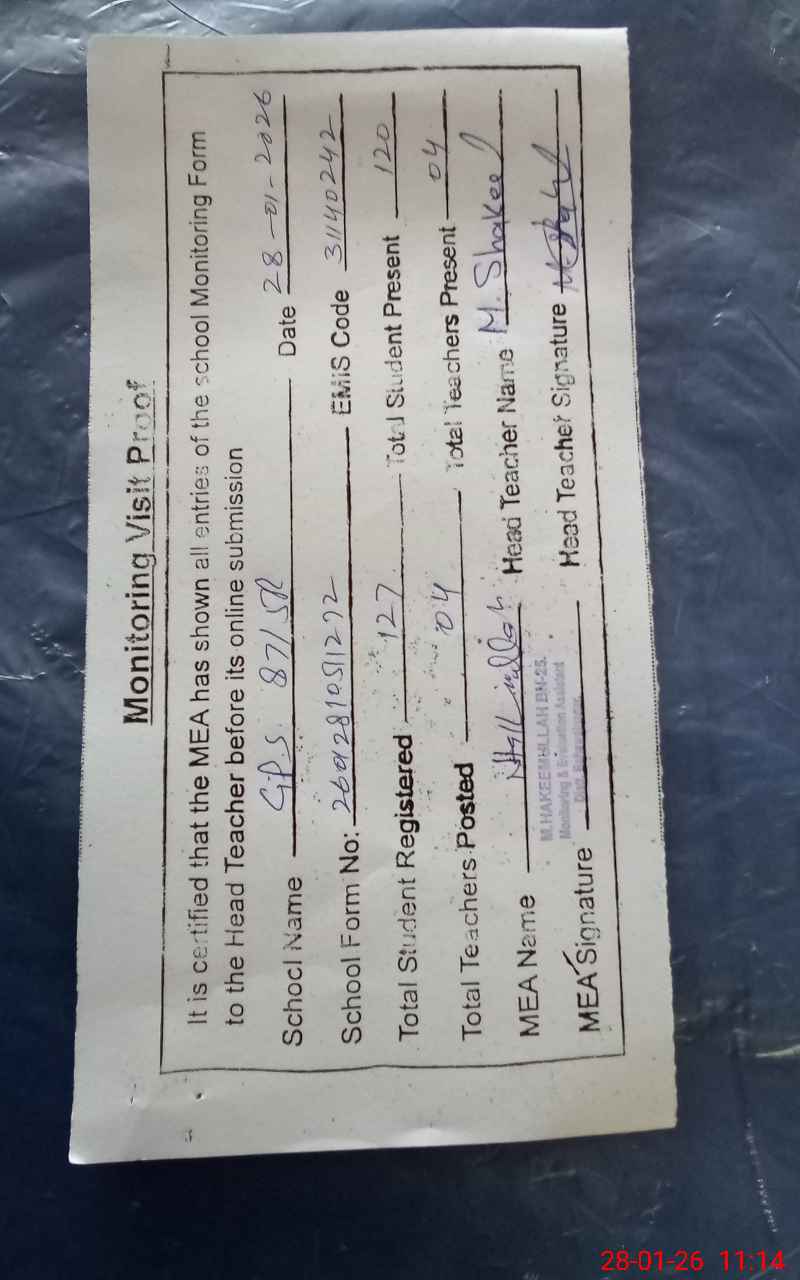 Monitoring Visit Proof
It is certified that the MEA has shown all entries of the school Monitoring Form
to the Head Teacher before its online submission
School Name G.P.S. 87/5R Date 28-01-2026
School Form No: EMIS Code 31140242
Total Student Registered 127 Total Student Present 120
Total Teachers Posted 04 Total Teachers Present 04
MEA Name Head Teacher Name M. Shakeel
M.HAKEEMULLAH BN-25.
Monitoring & Evaluation Assistant
MEA Signature Head Teacher Signature
28-01-26 11:14